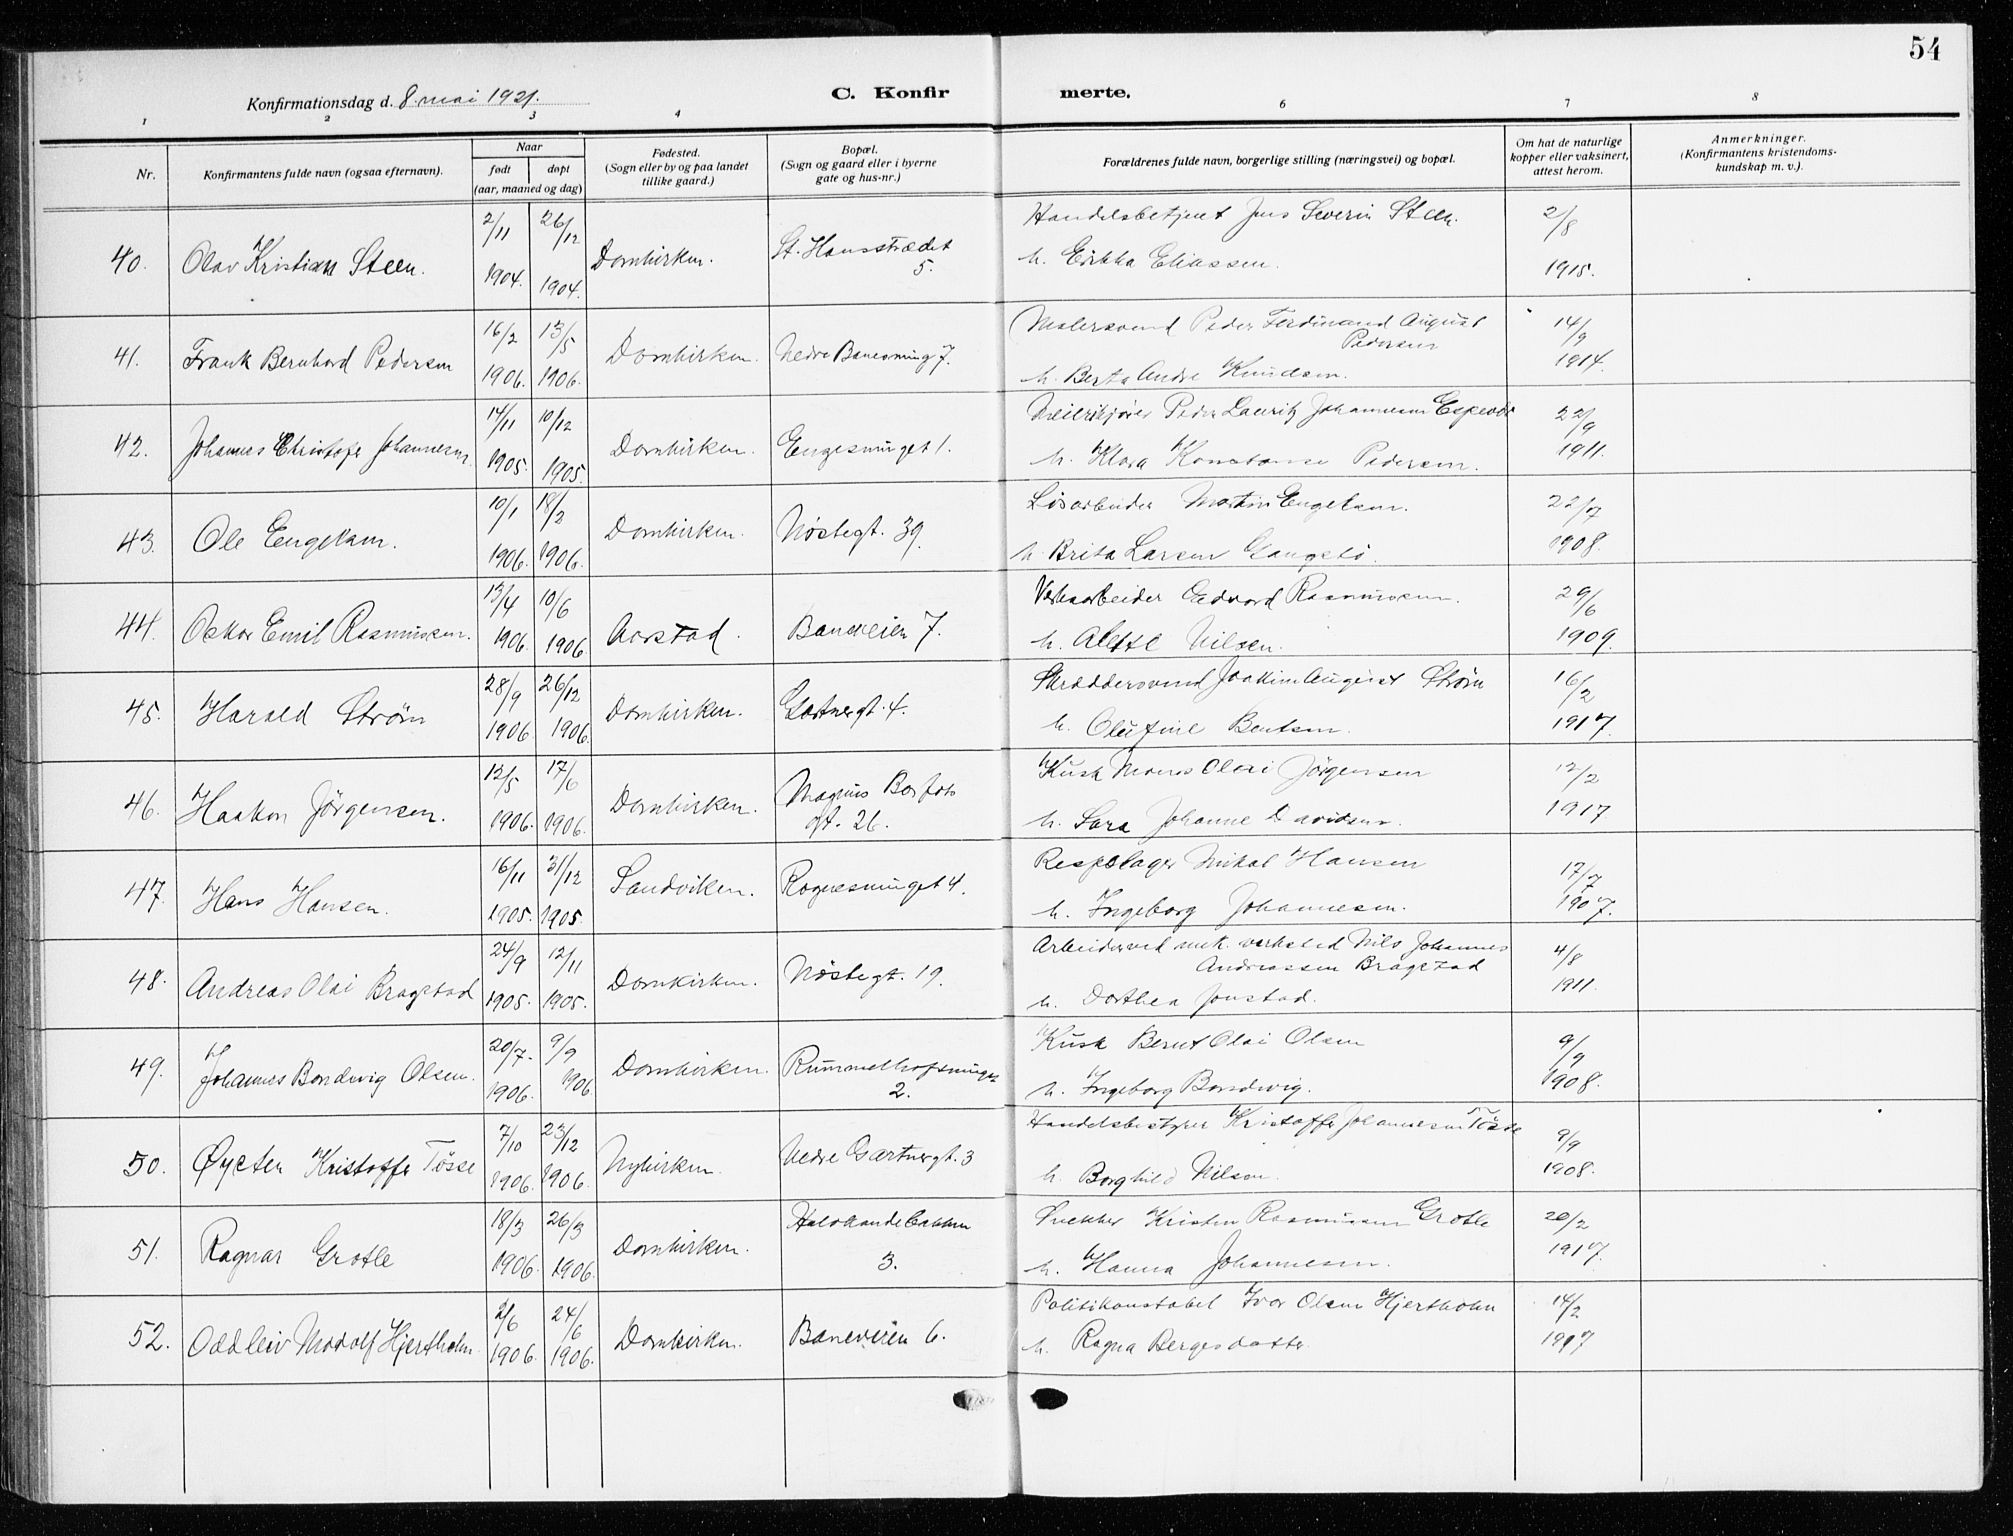 54
Konfirmationsdag d. 8. mai 1921.
C. Konfir merte.
1 2 3 4 6 7 8
Nr.
Konfirmantens fulde navn (ogsaa efternavn).
Naar
født døpt
(aar, maaned og dag)
Fødested.
(Sogn eller by og paa landet
tillike gaard.)
Bopæl.
(Sogn og gaard eller i byerne
gate og hus-nr.)
Forældrenes fulde navn, borgerlige stilling (næringsvei) og bopæl.
Om hat de naturlige
kopper eller vaksinert,
attest herom.
Anmerkninger.
(Konfirmantens kristendoms-
kundskap m. v.).
2/11 26/12 Handelsbetjent Jens Severin Steen. 2/8
40. Olav Kristian Steen. Domkirken. St. Hansstrædet
5. h. Erikka Eliassen.
1904. 1904. 1915.
16/2 13/5 Malersvend Peder Ferdinand August 14/9
Pedersen
41. Frank Bernhard Pedersen Domkirken. Nedre Banesmug 7.
1906. 1906. h. Berta Andre Knudsen. 1914.
14/11 10/12 Peder Lauritz Johannesen Espevær 22/9
42. Johannes Christofer Johannesen. Domkirken. Engesmuget 1.
1905. 1905. h. Klara Konstanse Pedersen. 1911.
10/1 18/2 Løsarbeider Martin Engelsen. 22/7
43. Ole Engelsen. Domkirken. Nøstegt. 39.
1906. 1906. h. Brita Larsen 1908.
13/4 10/6 Verksarbeider Edvard Rasmussen. 29/6
44. Oskar Emil Rasmussen. Aarstad. Baneveien 7.
1906. 1906 h. Alette Nilsen. 1909.
28/9 26/12 Skræddersvend Joakim August Strøm 16/2
45. Harald Strøm Domkirken. Gartnergt. 4.
1906. 1906. h. Olufine Bentsen. 1917.
12/5 17/6 Kusk Mons Olai Jørgensen 12/2
46. Haakon Jørgensen. Domkirken. Magnus Barfots
gt. 26.
1906. 1906. h. Sara Johanne Davidsen. 1917
16/11 31/12 Repslager Mikal Hansen 17/7
47. Hans Hansen. Sandviken. Rognesmuget 4.
1905. 1905. h. Ingeborg Johannesen. 1907.
24/9 12/11 Arbeider ved mek. verksted Nils Johannes 4/8
Andreassen Bragstad
48. Andreas Olai Bragstad Domkirken. Nøstegt. 19.
1905. 1905. h. Dorthea Jonstad. 1911.
20/7 9/9 Kusk Bernt Olai Olsen 9/9
49. Johannes Bondevig Olsen. Domkirken. Rummelhofsmuget
2.
1906. 1906 h. Ingeborg Bondevig. 1908.
7/10 23/12 Handelsbestyrer Kristoffer Johannesen Tøsse 9/9
50. Øysten Kristoffer Tøsse Nykirken. Nedre Gartnergt. 3
1906. 1906. h. Borghild Nilsen. 1908.
18/3 26/3 Snekker Kristen Rasmussen Grotle 20/2
51. Ragnar Grotle Domkirken. Halvkandebakken
3.
1906. 1906. h. Hanna Johannesen. 1917.
2/6 24/6 Politikonstabel Ivar Olsen Hjertholm 14/2
52. Oddleiv Modolf Hjertholm. Domkirken. Baneveien 6.
1906. 1906. h. Ragna Bergesdatter. 1917